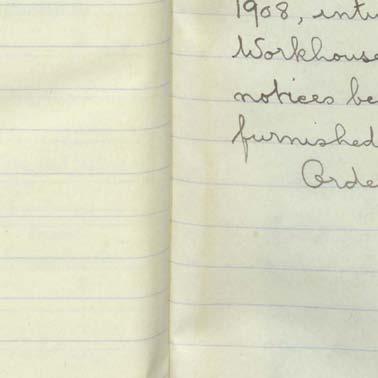 1908, intu
Workhouse
notices be
furnished
Orde